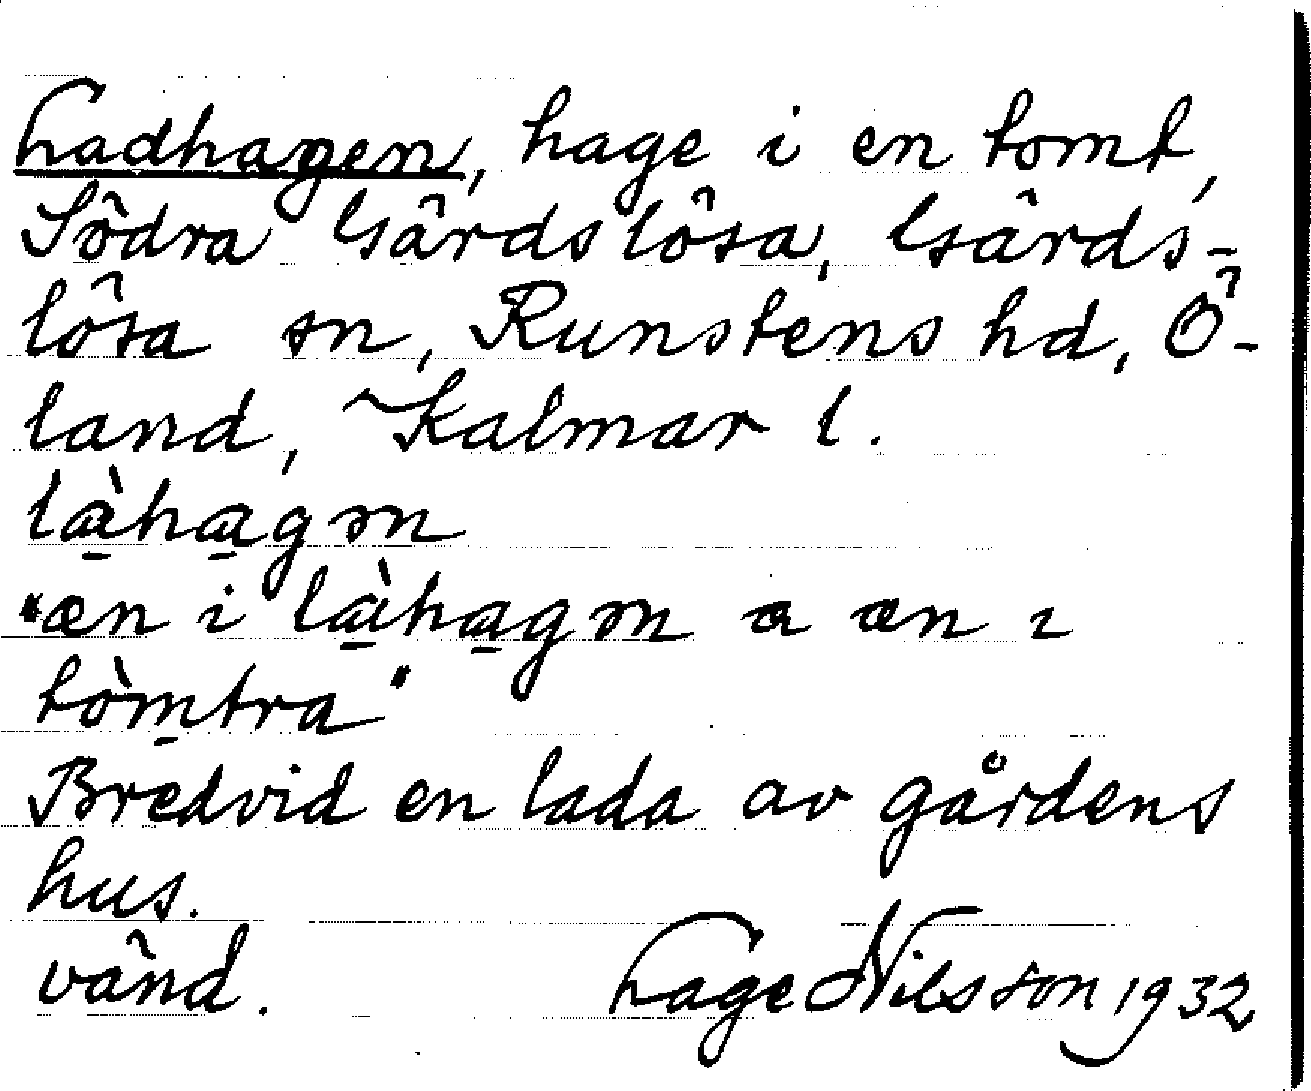 Ladhagen, hage i en tomt,
Södra Gärdslösa, Gärds-
lösa sn, Runstens hd, Ö-
land, Kalmar l.
là̠ha̠gən
"æn i là̠ha̠gən a æn ı
tòm̠tra"
Bredvid en lada av gårdens
hus.
vänd. Lage Nilsson 1932